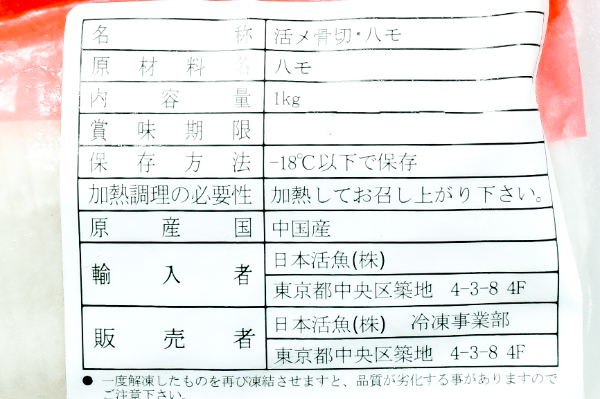 名称 活〆骨切・ハモ
原材料名 ハモ
内容量 1kg
賞味期限
保存方法 -18℃以下で保存
加熱調理の必要性 加熱してお召し上がり下さい。
原産国 中国産
輸入者 日本活魚(株)
東京都中央区築地 4-3-8 4F
販売者 日本活魚(株) 冷凍事業部
東京都中央区築地 4-3-8 4F
● 一度解凍したものを再び凍結させますと、品質が劣化する事がありますので
ご注意下さい。